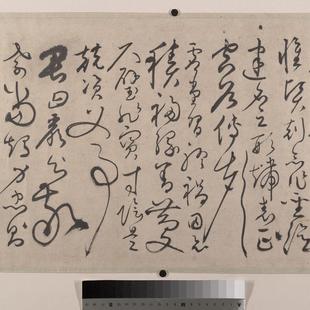 惟賢剋念作聖德
建名立形端表正
空谷傳聲
虛堂習聽禍因惡
積福緣善慶
尺璧非寶寸陰是
競資父事
君曰嚴與敬
孝當竭力忠則